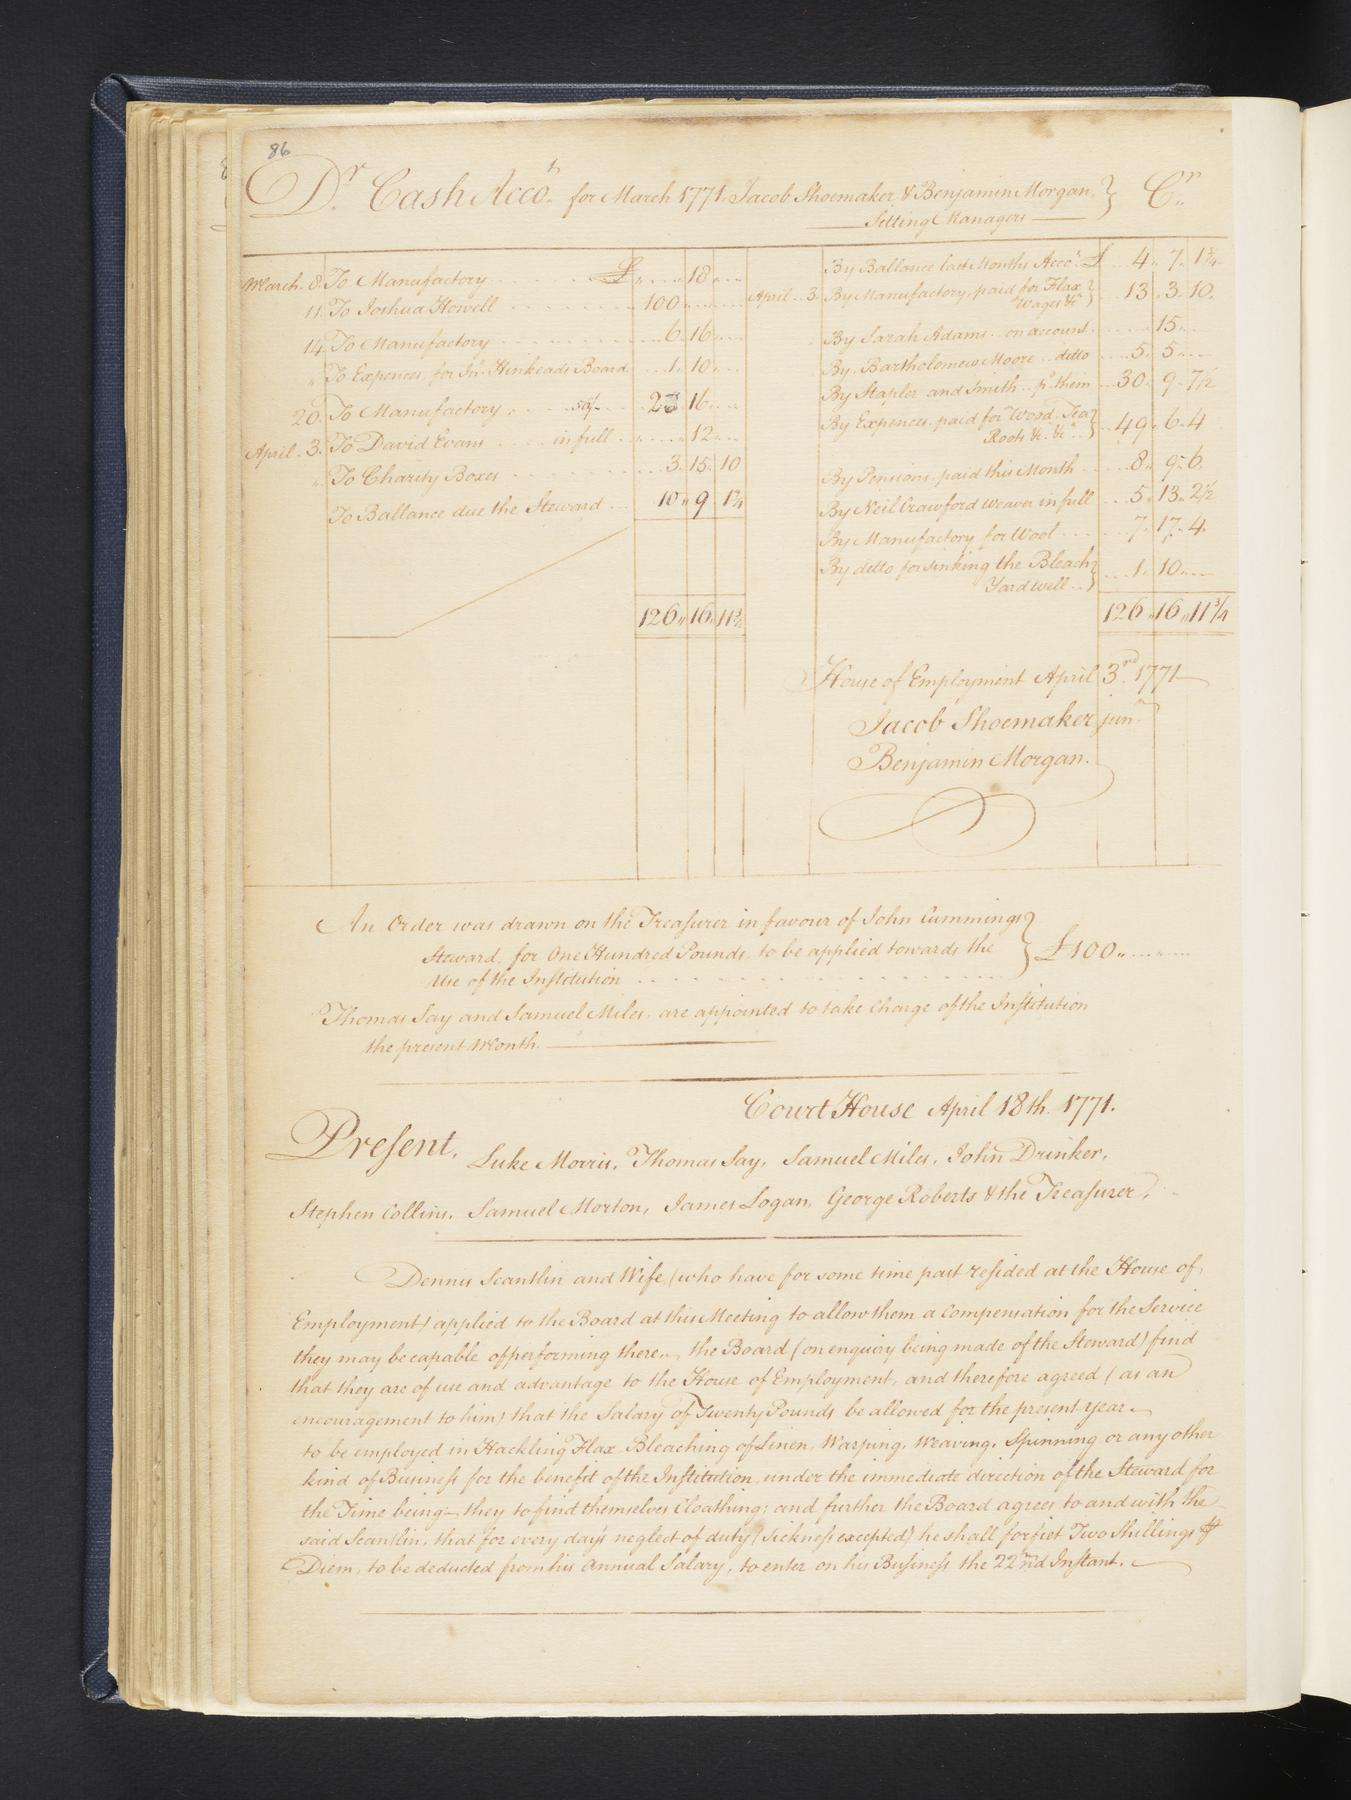 86
Dr. Cash Acco.t for March 1771. Jacob Shoemaker & Benjamin Morgan. } Cr.
Sitting Managers
March. 8. To Manufactory £ 18
11. To Joshua Howell 100
14. To Manufactory 6. 16
" To Expences, for Jno. Kinkeads Board. 1. 10
20. To Manufactory 23 16
April. 3. To David Evans in full 12
" To Charity Boxes 3. 15. 10
To Ballance due the Steward 10 " 9 1 3/4
126 " 16 " 11 3/4
By Ballance last Months Acco.t £ 4 " 7 " 1 3/4
April 3. By Manufactory, paid for Flax }
Wages &c } 13 " 3 " 10.
By Sarah Adams on account. 15
By Bartholomew Moore ditto 5 " 5
By Stapler and Smith pd. them 30 " 9 " 7 1/2
By Expences, paid for Wood, Tea }
Roots &c. &c. } 49 " 6 " 4
By Pensions, paid this Month 8 " 9 " 6
By Neil Crawford weaver in full 5 " 13 " 2 1/2
By Manufactory for Wool 7 " 17 " 4.
By ditto for sinking the Bleach }
Yard well } 1 " 10
126 " 16 " 11 3/4
House of Employment April 3rd. 1771
Jacob Shoemaker junr.
Benjamin Morgan.
An Order was drawn on the Treasurer in favour of John Cummings }
Steward, for One Hundred Pounds, to be applied towards the } £100 "
Use of the Institution
Thomas Say and Samuel Miles, are appointed to take Charge of the Institution
the present Month.
Court House April 18th. 1771.
Present, Luke Morris, Thomas Say, Samuel Miles, John Drinker,
Stephen Collins, Samuel Morton, James Logan, George Roberts & the Treasurer,
Dennis Scantlin and Wife, (who have for some time past resided at the House of
Employment) applied to the Board at this Meeting to allow them a Compensation for the Service
they may be capable of performing there, the Board (on enquiry being made of the Steward) find
that they are of use and advantage to the House of Employment, and therefore agreed (as an
encouragement to him) that the Salary of Twenty Pounds be allowed for the present year
to be employed in Hackling Flax, Bleaching of Linen, Warping, Weaving, Spinning or any other
kind of Business for the benefit of the Institution, under the immediate direction of the Steward for
the Time being they to find themselves Cloathing; and further the Board agrees to and with the
said Scantlin, that for every day's neglect of duty (Sickness excepted) he shall forfiet Two Shillings ⅌
Diem, to be deducted from his Annual Salary, to enter on his Business the 22nd Instant.